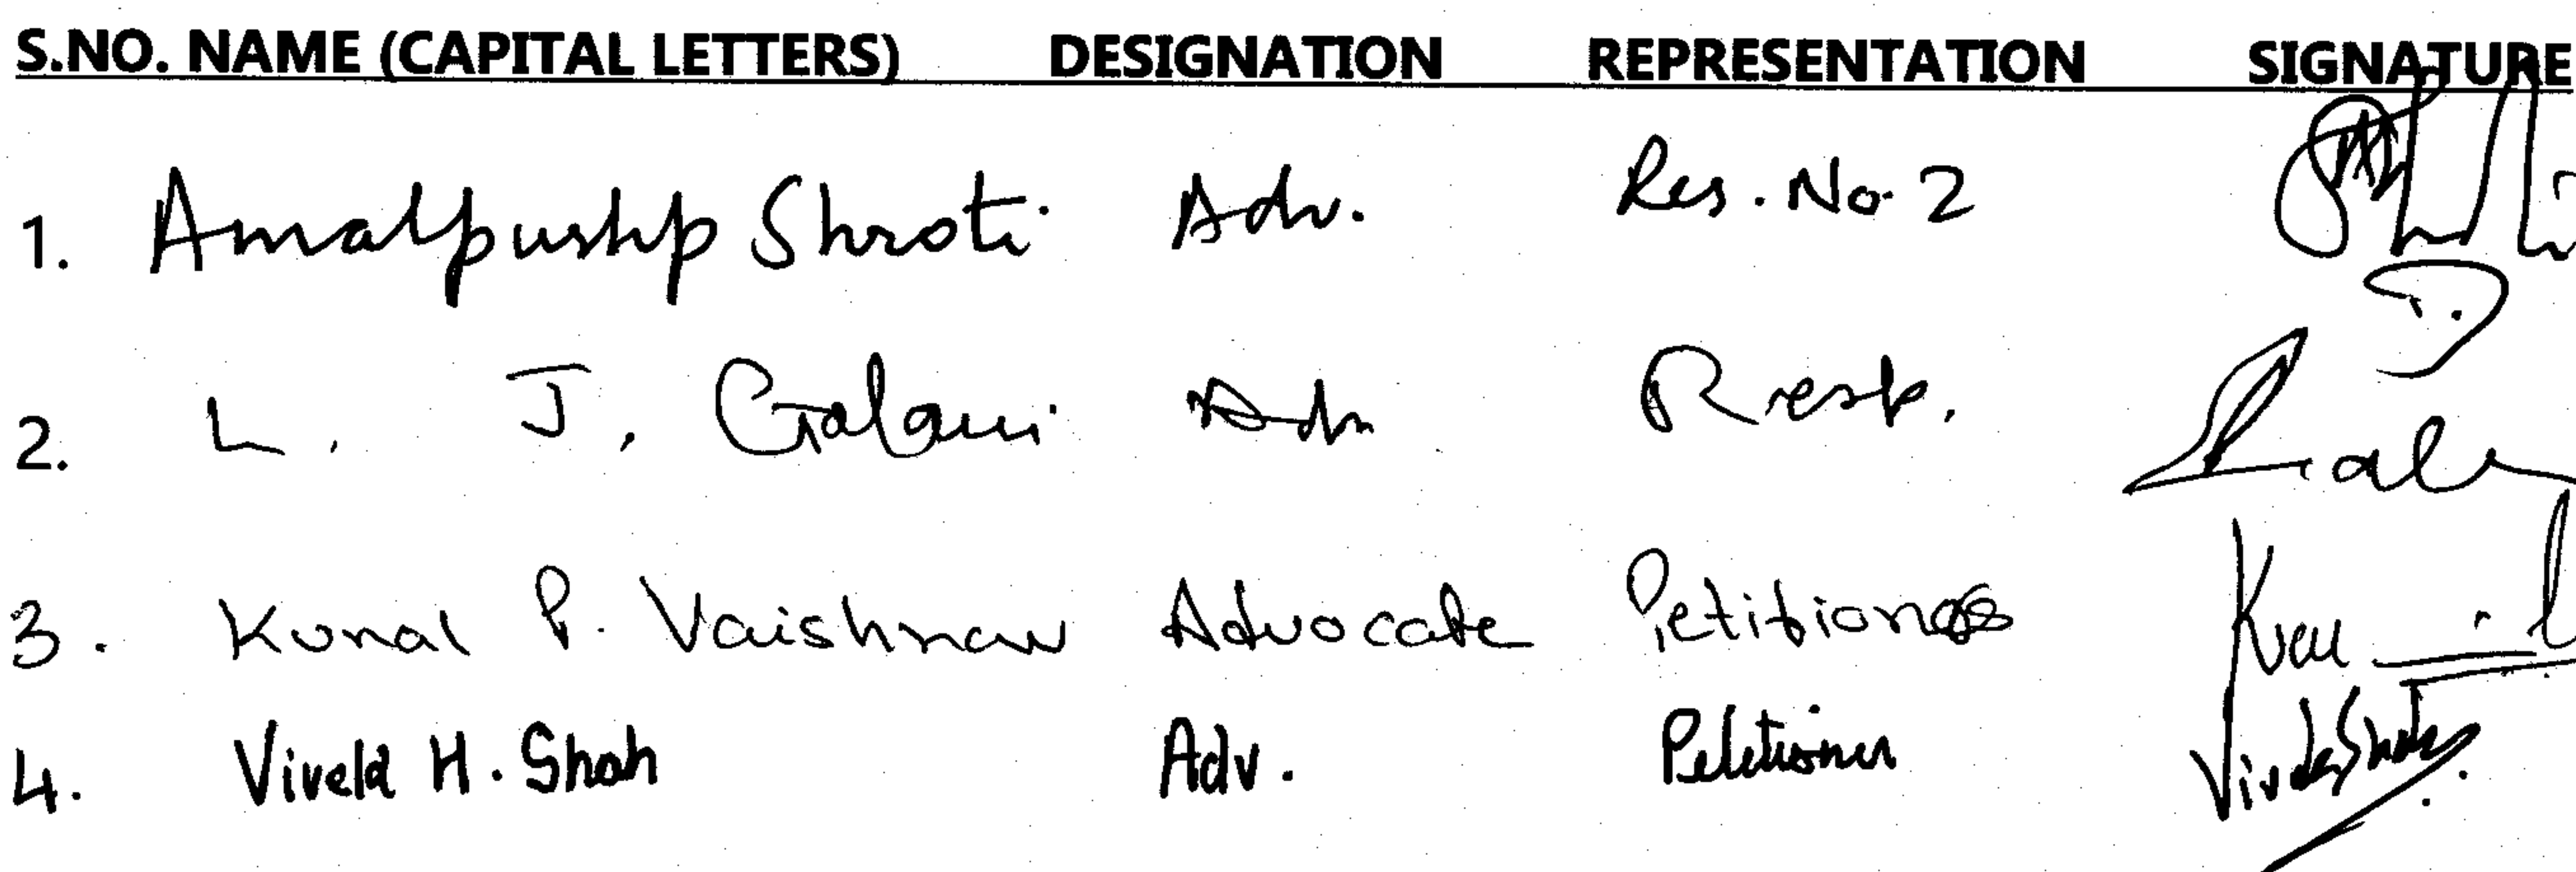 S.NO. NAME (CAPITAL LETTERS) DESIGNATION REPRESENTATION SIGNATURE
1. Amalpushp Shroti Adv. Res. No. 2
2. L. J. Galani Adv Resp.
3. Kunal P. Vaishnav Advocate Petitioners
4. Vivek H. Shah Adv. Petitioner